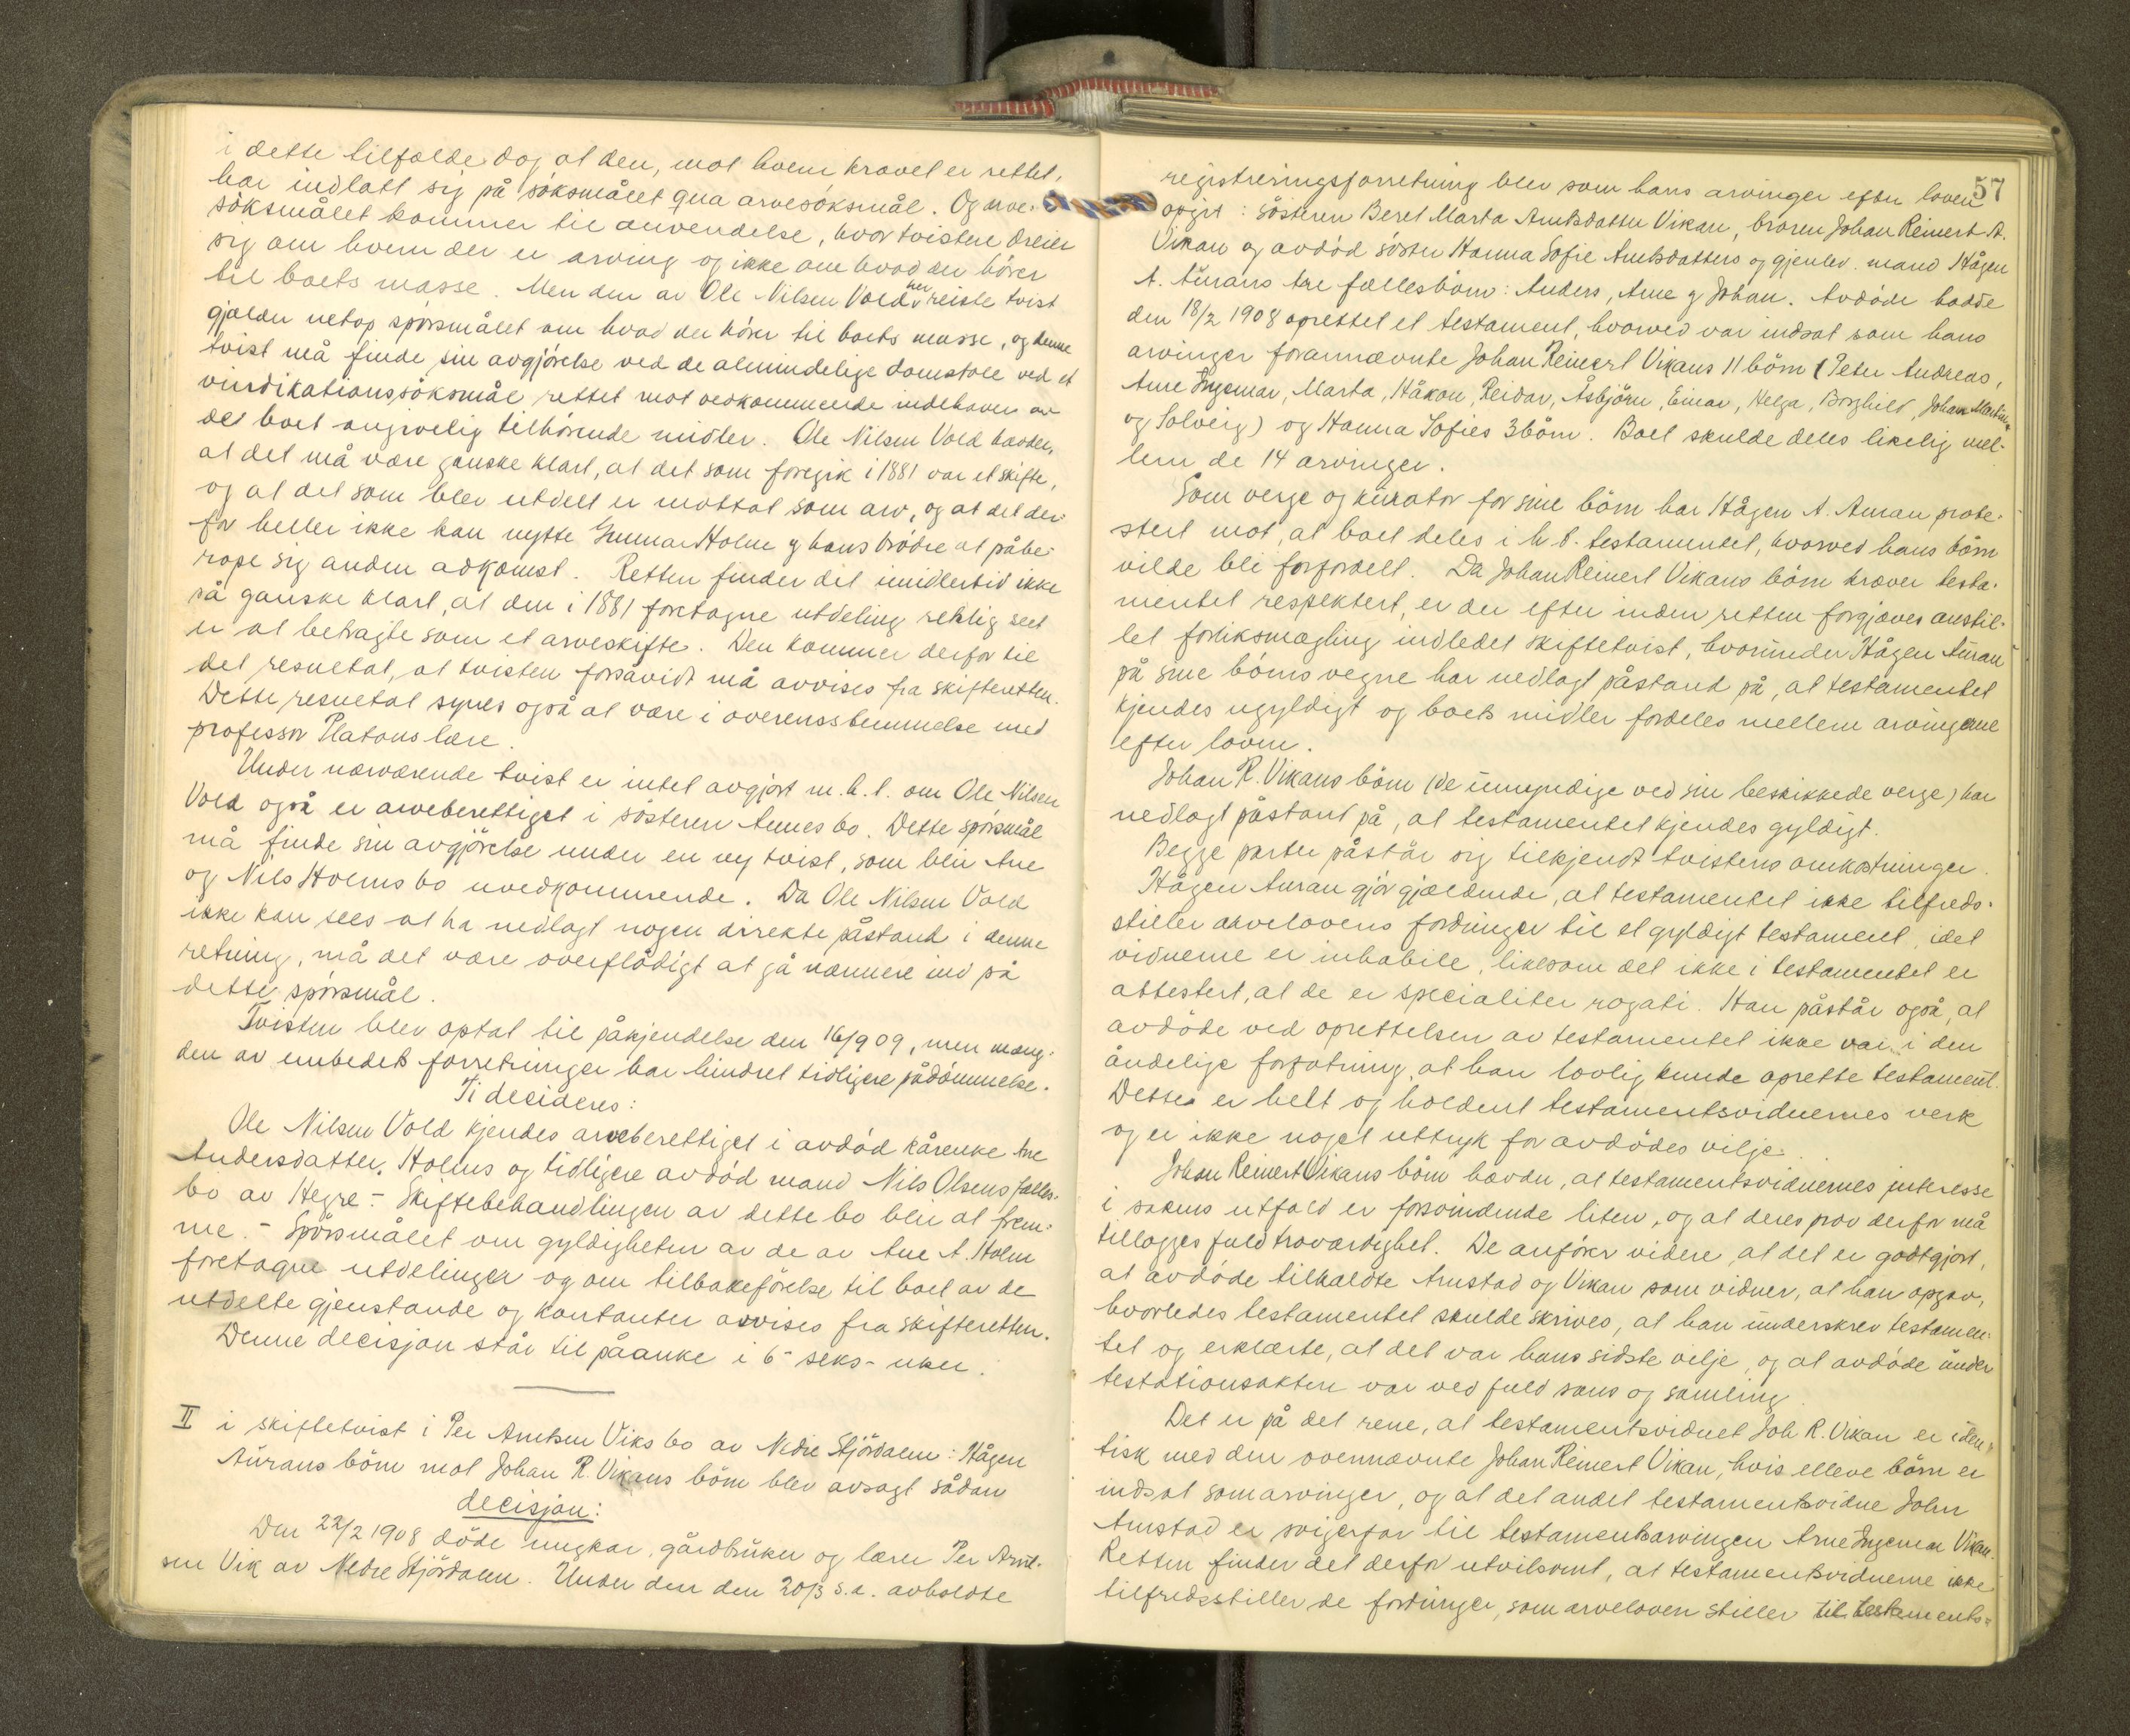 i dette tilfælde dog at den, mot hvem kravet er rettet,
har indlatt sig på söksmålet qua arvesöksmål. Og arve-
söksmålet kommer til anvendelse, hvor tvisten dreier
sig om hvem der er arving og ikke om hvad der hörer
til boets masse. Men den av Ole Nilsen Vold her reiste tvist
gjælder netop spörsmålet om hvad der hörer til boets masse, og denne
tvist må finde sin avgjörelse ved de almindelige domstole ved et
vindikationssöksmål rettet mot vedkommende indehaver av
de boet angivelig tilhörende midler. Ole Nilsen Vold hævder,
at det må være ganske klart, at det som foregik i 1881 var et skifte,
og at det som blev utdelt er mottat som arv, og at det der-
for heller ikke kan nytte Gunnar Holm og hans brödre at påbe-
rope sig anden adkomst. Retten finder det imidlertid ikke
så ganske klart, at den i 1881 foretagne utdeling rettslig seet
er at betragte som et arveskifte. Den kommer derfor til
det resultat, at tvisten forsåvidt må avvises fra skifteretten.
Dette resultat synes også at være i overensstemmelse med
professor Platous lære.
Under nærværende tvist er intet avgjort m.h.t. om Ole Nilsen
Vold også er arveberettiget i sösteren Annes bo. Dette spörsmål
må finde sin avgjörelse under en ny tvist, som blir Ane
og Nils Holms bo uvedkommende. Da Ole Nilsen Vold
ikke kan sees at ha nedlagt nogen direkte påstand i denne
retning, må det være overflödigt at gå nærmere ind på
dette spörsmål.
Tvisten blev optat til påkjendelse den 16/9 09, men mæng-
den av embedets forretninger har hindret tidligere pådömmelse.
Ti decideres:
Ole Nilsen Vold kjendes arveberettiget i avdöd kårenke Ane
Andersdatter Holms og tidligere avdöd mand Nils Olsens fælles-
bo av Hegre. - Skiftebehandlingen av dette bo blir at frem-
me. - Spörsmålet om gyldigheten av de av Ane A. Holm
foretagne utdelinger og om tilbakeförelse til boet av de
utdelte gjenstande og kontanter avvises fra skifteretten.
Denne decisjon står til påanke i 6 - seks - uker.
II i skiftetvist i Per Arntsen Viks bo av Nedre Stjördalen: Hågen
Aurans börn mot Johan R. Vikans börn blev avsagt sådan
decisjon:
Den 22/2 1908 döde ungkar, gårdbruker og lærer Per Arnt-
sen Vik av Nedre Stjördalen. Under den den 20/3 s.å. avholdte
57
registreringsforretning blev som hans arvinger efter loven
opgit: sösteren Beret Marta Arntsdatter Vikan, broren Johan Reinert A.
Vikan og avdöd söster Hanna Sofie Arntsdatters og gjenlev. mand Hågen
A. Aurans tre fællesbörn: Anders, Arne og Johan. Avdöde hadde
den 18/2 1908 oprettet et testament, hvorved var indsat som hans
arvinger forannævnte Johan Reinert Vikans 11 börn (Peter Andreas,
Arne Ingemar, Marta, Håkon, Reidar, Åsbjörn, Einar, Helga, Borghild, Johan Martin
og Solveig) og Hanna Sofies 3 börn. Boet skulde deles likelig mel-
lem de 14 arvinger.
Som verge og kurator for sine börn har Hågen A. Auran prote-
stert mot, at boet deles i h.t. testamentet, hvorved hans börn
vilde bli forfordelt. Da Johan Reinert Vikans börn kræver testa-
mentet respektert, er der efter inden retten forgjæves anstil-
let forliksmægling indledet skiftetvist, hvorunder Hågen Auran
på sine börns vegne har nedlagt påstand på, at testamentet
kjendes ugyldigt og boets midler fordeles mellem arvingerne
efter loven.
Johan R. Vikans börn (de umyndige ved sin beskikkede verge) har
nedlagt påstand på, at testamentet kjendes gyldigt.
Begge parter påstår sig tilkjendt tvistens omkostninger.
Hågen Auran gjör gjældende, at testamentet ikke tilfreds-
stiller arvelovens fordringer til et gyldigt testament, idet
vidnerne er inhabile, likesom det ikke i testamentet er
attestert, at de er specialiter rogati. Han påstår også, at
avdöde ved oprettelsen av testamentet ikke var i den
åndelige forfatning, at han lovlig kunde oprette testament.
Dette er helt og holdent testamentsvidnernes verk
og er ikke noget uttryk for avdödes vilje.
Johan Reinert Vikans börn hævder, at testamentsvidnernes interesse
i sakens utfald er forsvindende liten, og at deres prov derfor må
tillægges fuld troværdighet. De anförer videre, at det er godtgjort,
at avdöde tilkaldte Arnstad og Vikan som vidner, at han opgav,
hvorledes testamentet skulde skrives, at han underskrev testamen-
tet og erklærte, at det var hans sidste vilje, og at avdöde under
testationsakten var ved fuld sans og samling.
Det er på det rene, at testamentsvidnet Joh R. Vikan er iden-
tisk med den ovennævnte Johan Reinert Vikan, hvis elleve börn er
indsat som arvinger, og at det andet testamentsvidne John
Arnstad er svigerfar til testamentsarvingen Arne Ingemar Vikan.
Retten finder det derfor utvilsomt, at testamentsvidnerne ikke
tilfredsstiller de fordringer, som arveloven stiller til testaments-